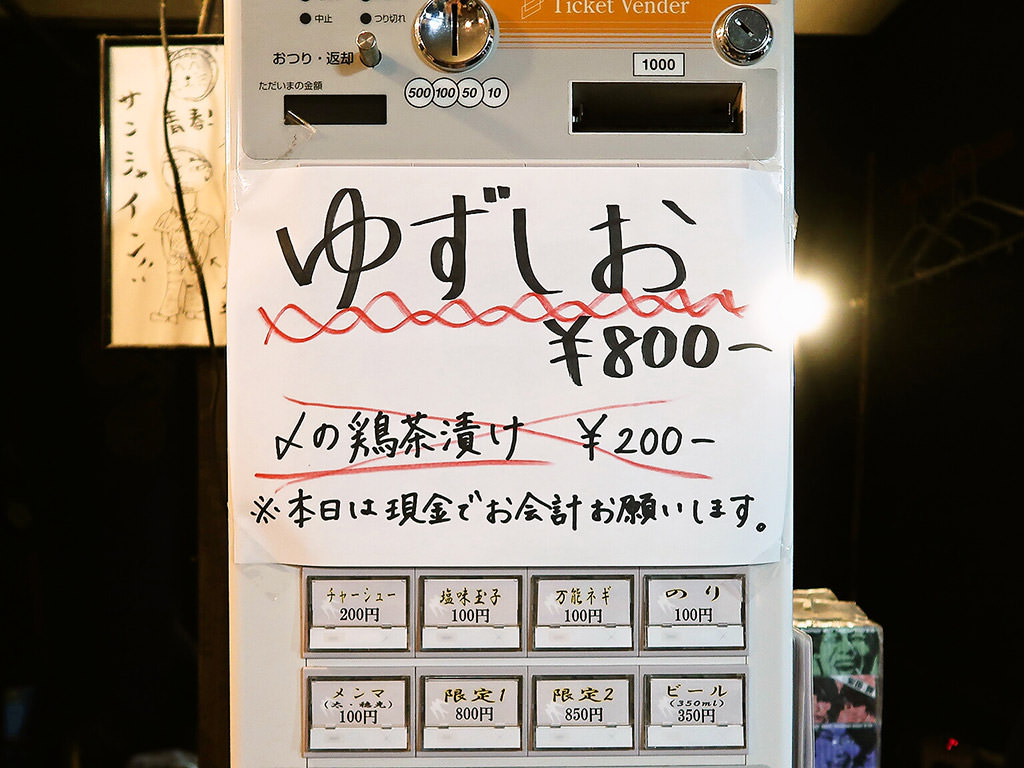 Ticket Vender
中止
つり切れ
おつり・返却
1000
ただいまの金額
500 100 50 10
サンシャイン!!
青春!
ゆずしお
¥800-
〆の鶏茶漬け ¥200-
※本日は現金でお会計お願いします。
チャーシュー 塩味玉子 万能ネギ のり
200円 100円 100円 100円
メンマ 限定1 限定2 ビール
(太・穂先) (350ml)
100円 800円 850円 350円